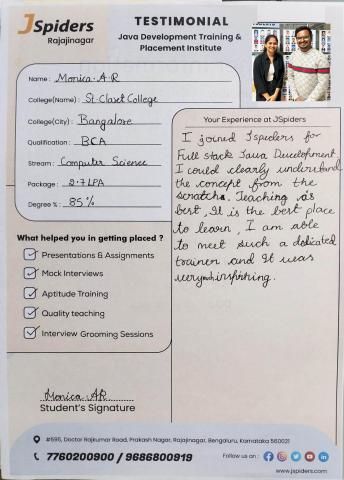 JSpiders
Rajajinagar
TESTIMONIAL
Java Development Training &
Placement Institute
Name : Monica. A R
College(Name) : St. Claret College
College(City) : Bangalore
Qualification : BCA
Stream : Computer Science
Package : 2.7 LPA
Degree % : 85%
What helped you in getting placed ?
Presentations & Assignments
Mock Interviews
Aptitude Training
Quality teaching
Interview Grooming Sessions
Your Experience at JSpiders
I joined Jspiders for
Full stack Java Development
I could clearly understand
the concept from the
scratch. Teaching is
best, It is the best place
to learn, I am able
to meet such a dedicated
trainer and It was
very much inspiring.
Monica AR
Student's Signature
#595, Doctor Rajkumar Road, Prakash Nagar, Rajajinagar, Bengaluru, Karnataka 560021
7760200900 / 9686800919
Follow us on :
www.jspiders.com